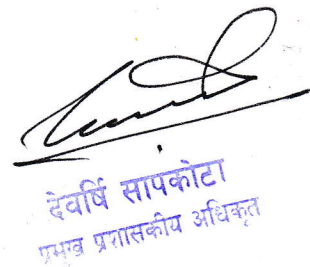 देवर्षि सापकोटा
प्रमुख प्रशासकीय अधिकृत